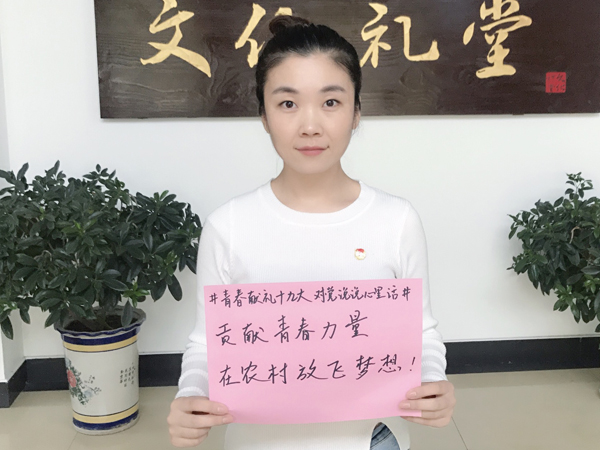 文化礼堂
#青春献礼十九大 对党说说心里话#
贡献青春力量
在农村放飞梦想!